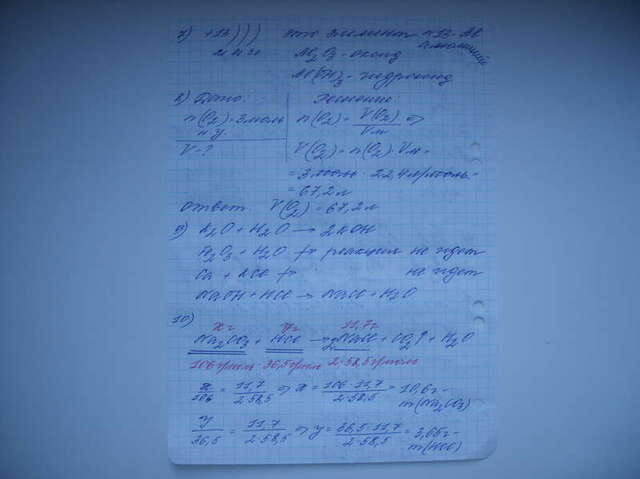 7) +13 ) ) ) это элемент n 13 - Al
2ē 8ē 3ē алюминий
Al₂O₃ - оксид
Al(OH)₃ - гидроксид
8) Дано: Решение:
n(O₂) = 3 моль n(O₂) = V(O₂)/Vм ⇒
н.у.
V - ? V(O₂) = n(O₂) · Vм =
= 3 моль · 22,4 л/моль =
= 67,2 л
ответ: V(O₂) = 67,2 л
9) K₂O + H₂O → 2KOH
Fe₂O₃ + H₂O ↛ реакция не идет
Cu + HCl ↛ не идет
NaOH + HCl → NaCl + H₂O
10)
x г y г 11,7 г
Na₂CO₃ + HCl → 2NaCl + CO₂↑ + H₂O
106 г/моль 36,5 г/моль 2·58,5 г/моль
x/106 = 11,7/2·58,5 ⇒ x = 106·11,7/2·58,5 = 10,6 г -
m(Na₂CO₃)
y/36,5 = 11,7/2·58,5 ⇒ y = 36,5·11,7/2·58,5 = 3,65 г -
m(HCl)